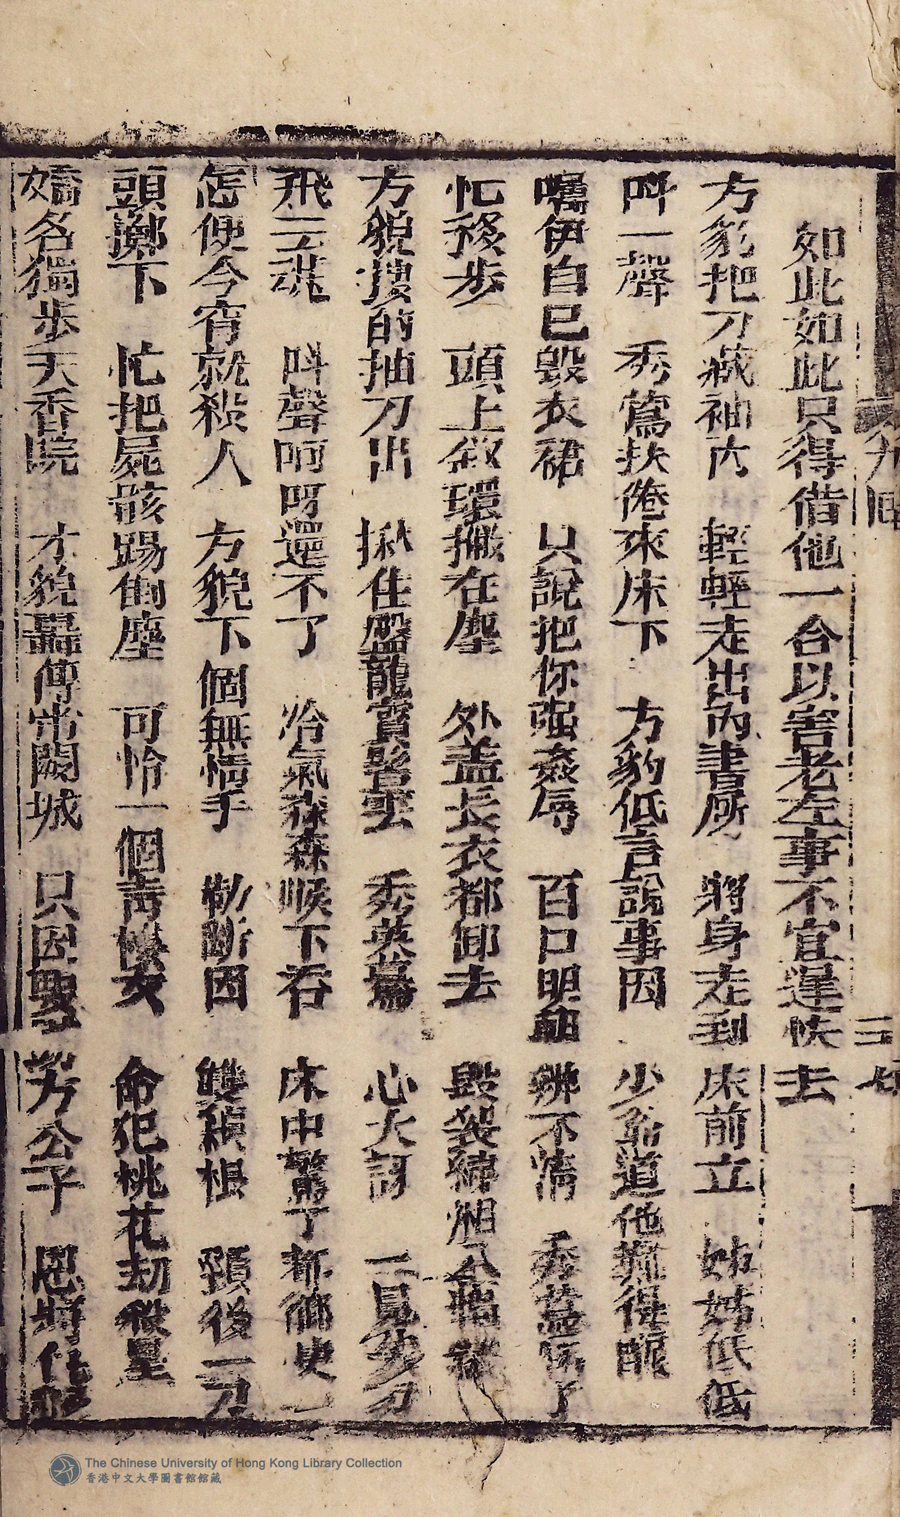 如此如此只得借他一台以害老左事不宜遲快去
方豹把刀藏袖內 輕輕走出內書房 將身走到床前立 姊姊低低
呌一聲 秀鶯扶倦來床下 方豹低言說事因 少爺道他難得醒
囑伊自已毀衣裙 只說把你强姦辱 百口明朝辨不清 秀
忙移步 頭上釵環撇在塵 外盖長衣都卸去 毀裂
方貌摟的抽刀出 揪住盤龍寳髻雲 秀英 心大訝 一見
飛三魂 呌聲呵呀還不了 冷氣森森喉下吞 床中驚了
怎便今宵就殺人 方貌下個無情手 勒斷因 根 頸後一刀
頭擲下 忙把屍骸踢倒塵 可怜一個青 女 命犯桃花劫殺星
嬌名獨步天香院 才貌轟傳帝闕城 只因 方公子 恩將仇
The Chinese University of Hong Kong Library Collection
香港中文大學圖書館館藏